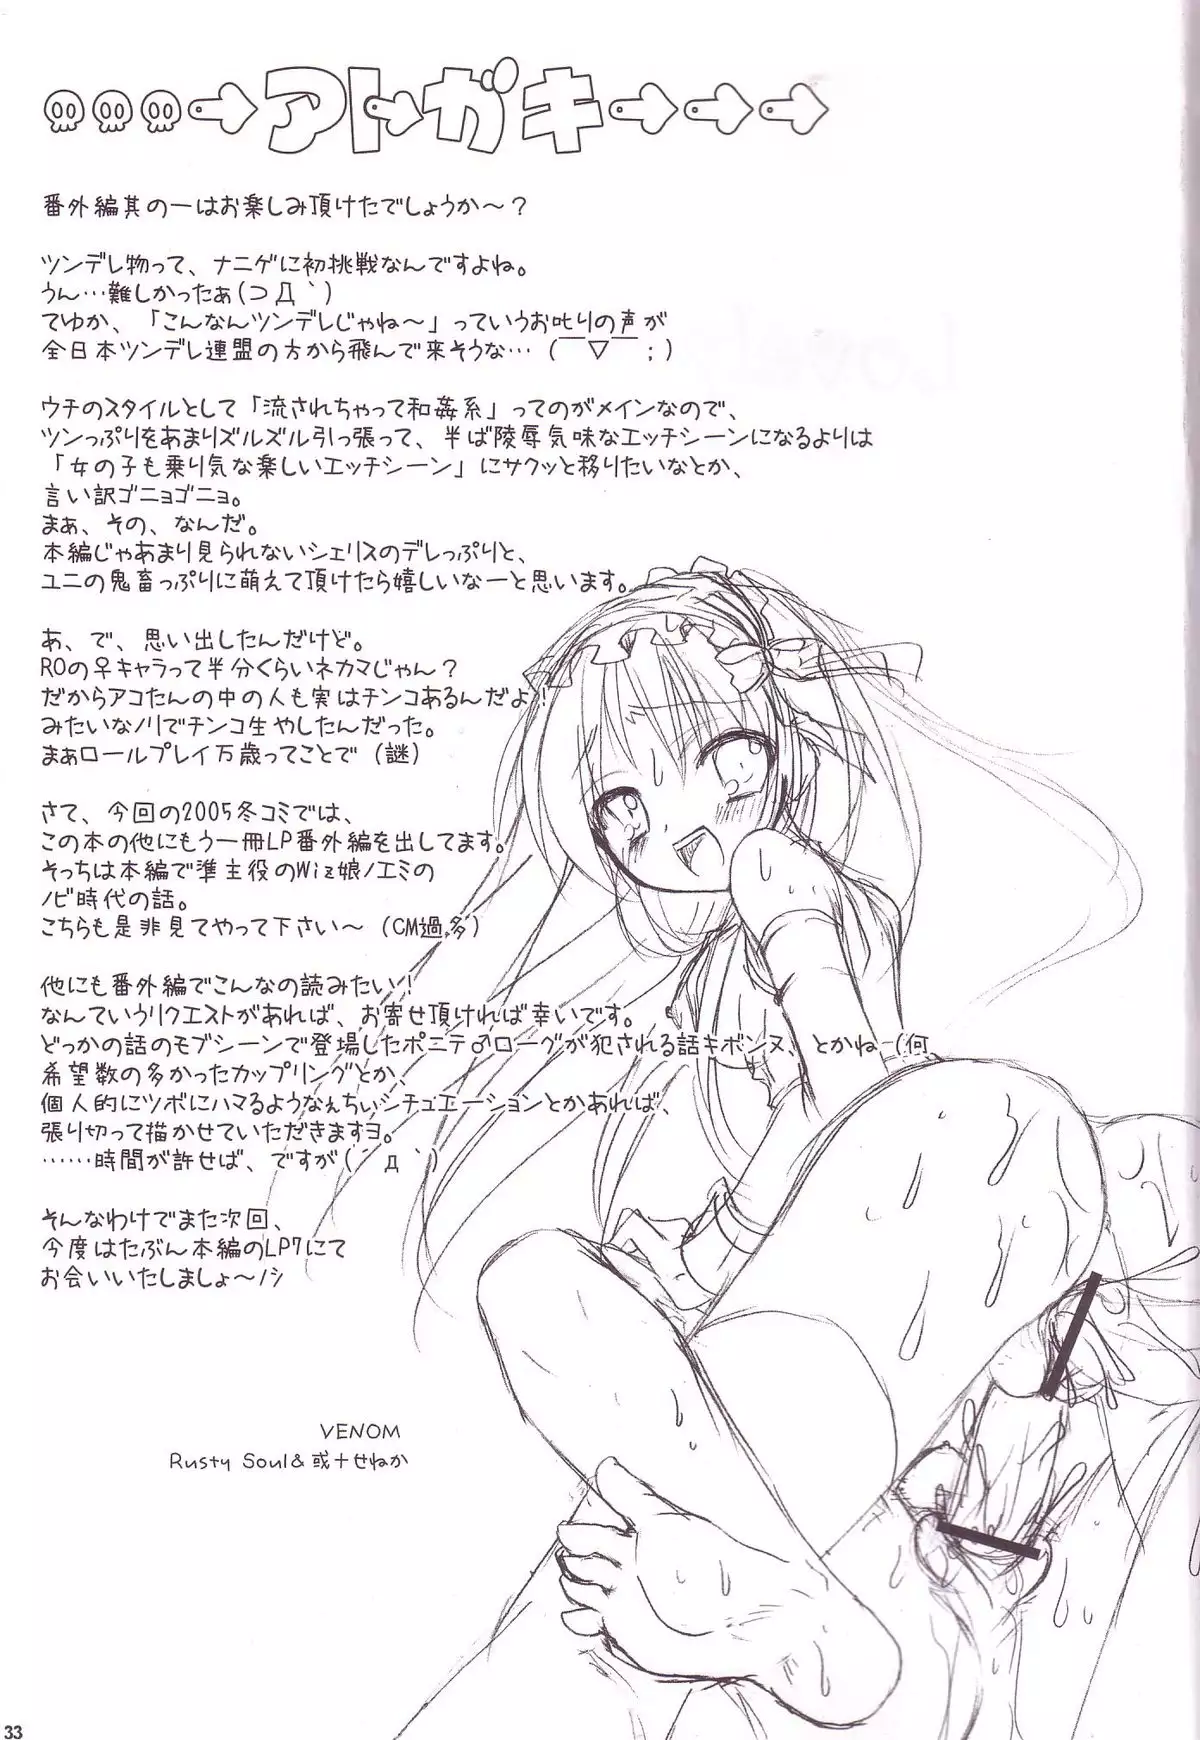 アトガキ
番外編其の一はお楽しみ頂けたでしょうか～？
ツンデレ物って、ナニゲに初挑戦なんですよね。
うん…難しかったぁ(つД｀)
てゆか、「こんなんツンデレじゃね～」っていうお叱りの声が
全日本ツンデレ連盟の方から飛んで来そうな…（￣▽￣；）
ウチのスタイルとして「流されちゃって和姦系」ってのがメインなので、
ツンっぷりをあまりズルズル引っ張って、半ば陵辱気味なエッチシーンになるよりは
「女の子も乗り気な楽しいエッチシーン」にサクッと移りたいなとか、
言い訳ゴニョゴニョ。
まぁ、その、なんだ。
本編じゃあまり見られないシェリスのデレっぷりと、
ユニの鬼畜っぷりに萌えて頂けたら嬉しいなーと思います。
あ、で、思い出したんだけど。
ROの♀キャラって半分くらいネカマじゃん？
だからアコたんの中の人も実はチンコあるんだよ！
みたいなノリでチンコ生やしたんだった。
まぁロールプレイ万歳ってことで（謎）
さて、今回の2005冬コミでは、
この本の他にもう一冊LP番外編を出してます。
そっちは本編で準主役のWiz娘ノエミの
ノビ時代の話。
こちらも是非見てやって下さい～（CM過多）
他にも番外編でこんなの読みたい！
なんていうリクエストがあれば、お寄せ頂ければ幸いです。
どっかの話のモブシーンで登場したポニテ♂ローグが犯される話キボンヌ、とかね（何
希望数の多かったカップリングとか、
個人的にツボにハマるようなぇちぃシチュエーションとかあれば、
張り切って描かせていただきますヨ。
……時間が許せば、ですが(´Д｀)
そんなわけでまた次回、
今度はたぶん本編のLP7にて
お会いいたしましょ～ノシ
VENOM
Rusty Soul＆或十せねか
33